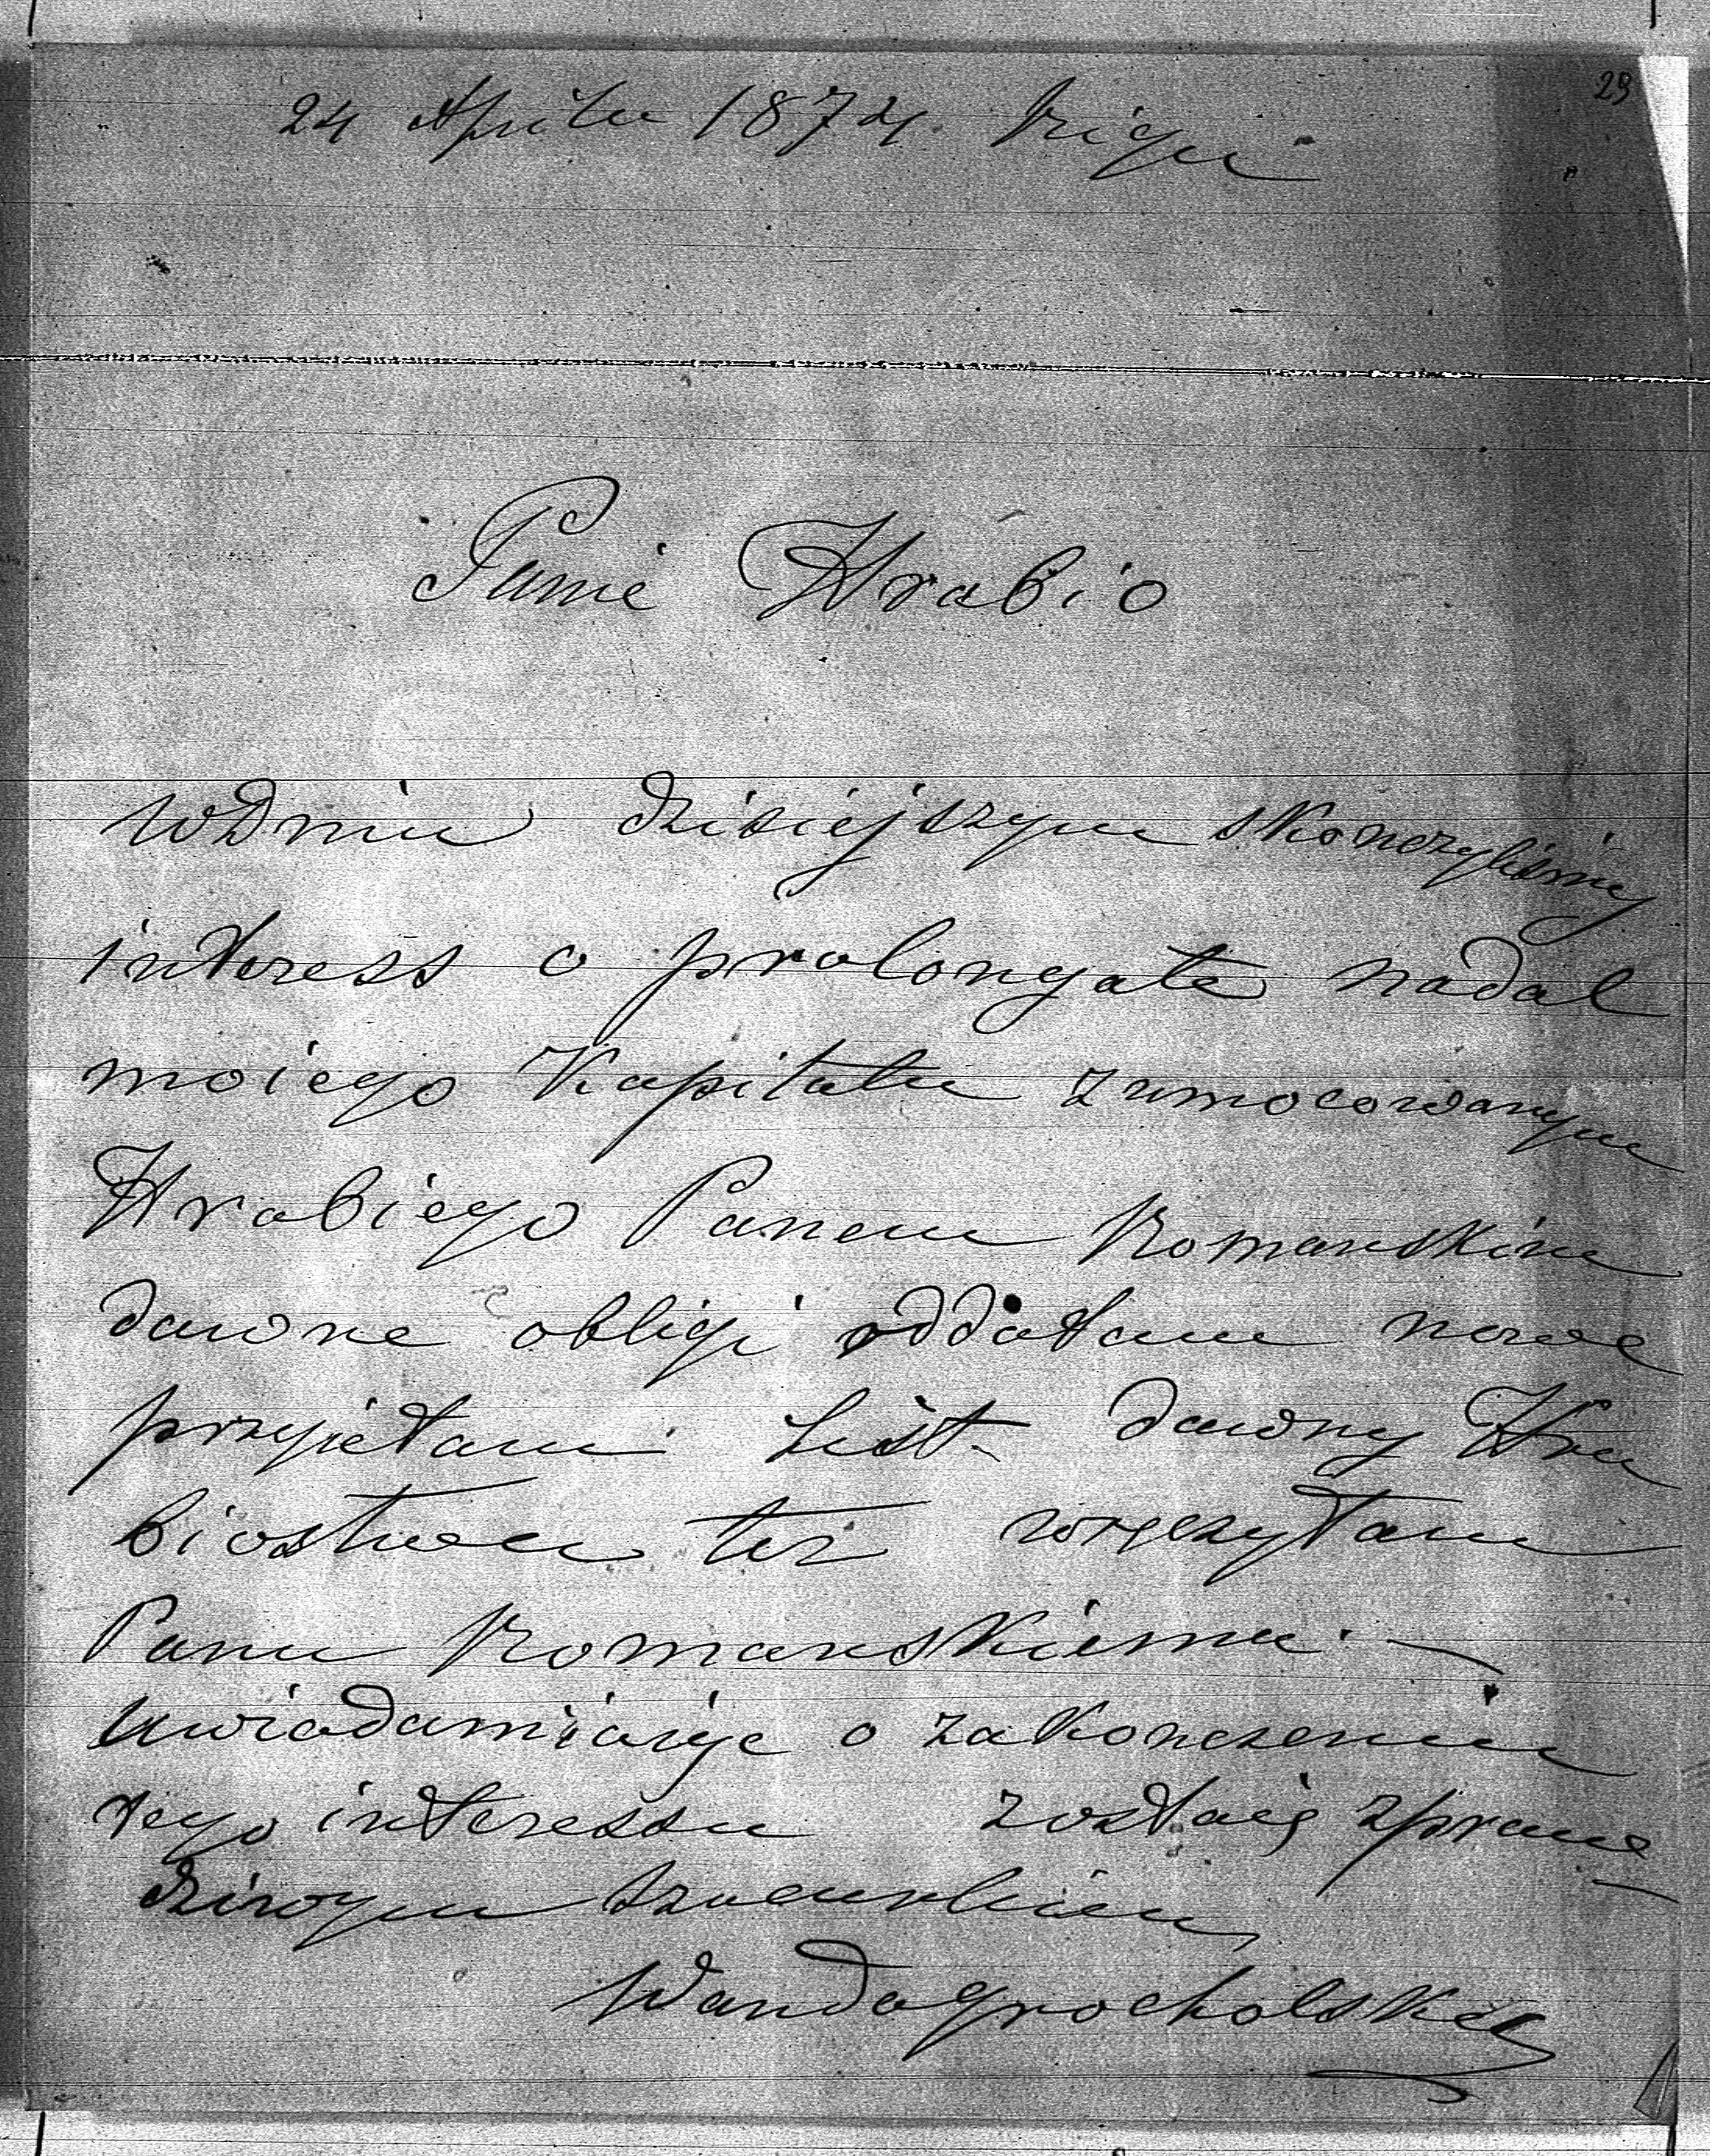 29
24 Aprilu 1874
Panie Hrabio
w Dniu dzisiejszym skonczylismy
interess o prolongate nadal
moiego Kapitału z umocowanym
Hrabiego Panem Romanskim
dawne obligi oddałam nowe
przyiełam List dawny Hra
biostwu też wręczyłam
Panu Romanskiemu. —
uwiadamiaiąc o zakonczeniu
tego interessu zostaię z praw-
dziwym szacunkiem
Wanda Grocholska